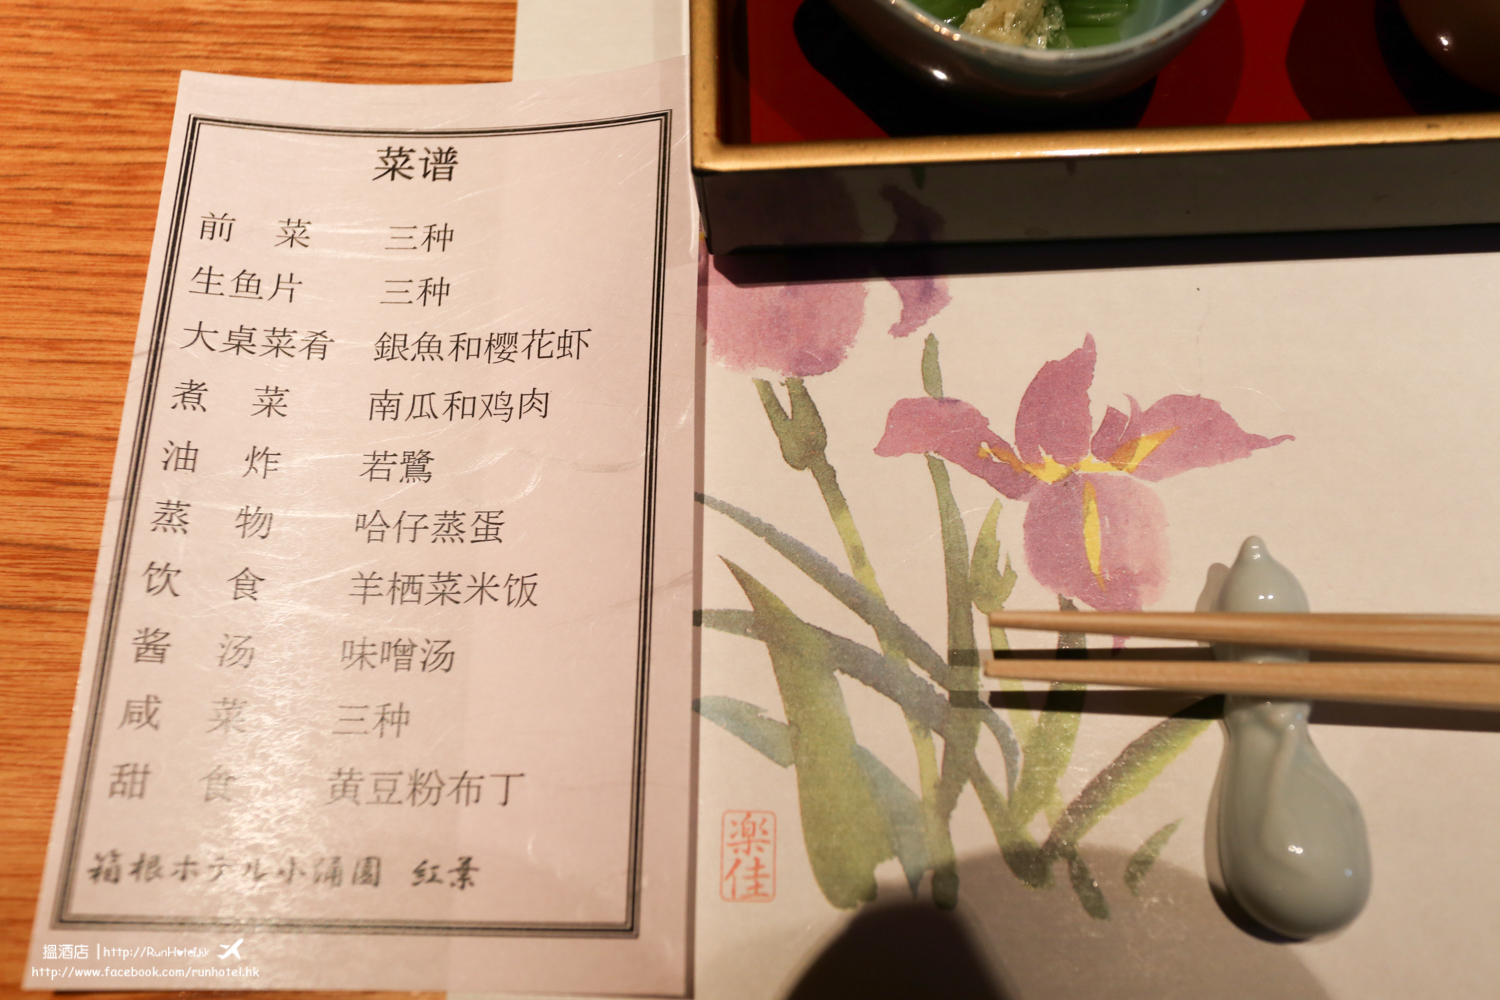 菜谱
前 菜 三种
生鱼片 三种
大桌菜肴 銀魚和樱花虾
煮 菜 南瓜和鸡肉
油 炸 若鷺
蒸 物 哈仔蒸蛋
饮 食 羊栖菜米饭
酱 汤 味噌汤
咸 菜 三种
甜 食 黄豆粉布丁
箱根ホテル小涌園 紅葉
楽佳
搵酒店 | http://RunHotel.hk
http://www.facebook.com/runhotel.hk